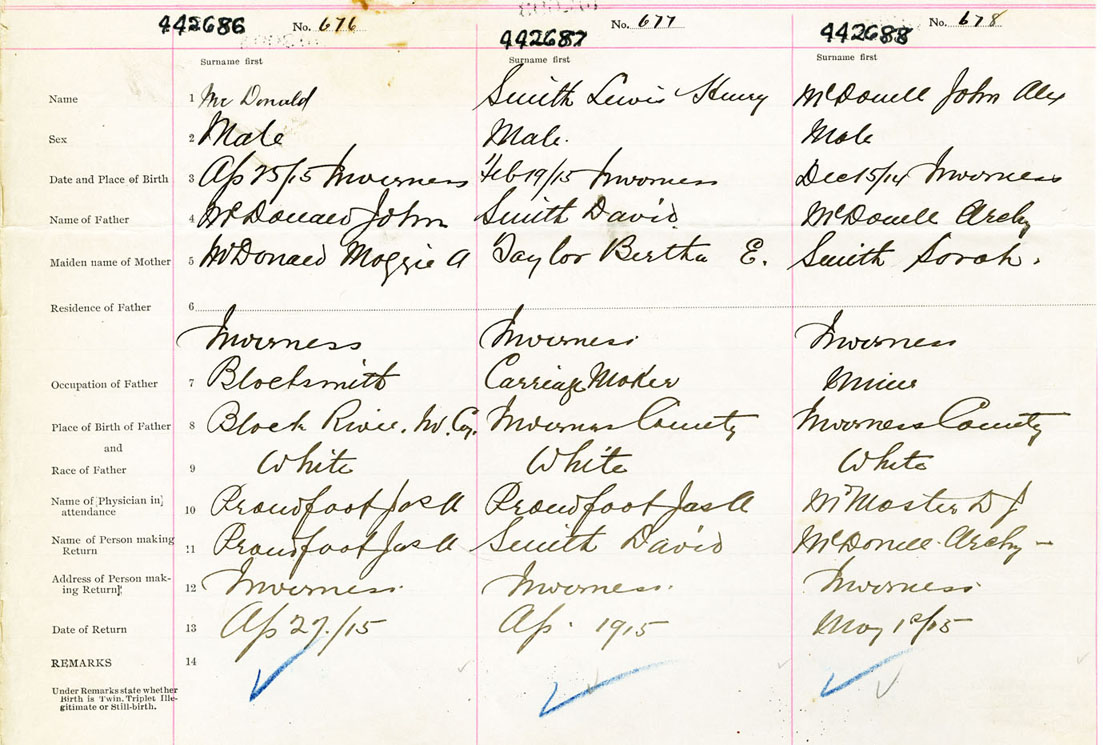 442686 No. 676 442687 No. 677 442688 No. 678
Surname first Surname first Surname first
Name 1 McDonald Smith Lewis Henry McDonell John Alex
Sex 2 Male Male. Male
Date and Place of Birth 3 Ap 25/15 Inverness Feb 19/15 Inverness Dec 15/14 Inverness
Name of Father 4 McDonald John Smith David McDonell Archy
Maiden name of Mother 5 McDonald Maggie A Taylor Bertha E. Smith Sarah.
Residence of Father 6
Inverness Inverness Inverness
Occupation of Father 7 Blacksmith Carriage Maker Miner
Place of Birth of Father 8 Black River, Inv. Co. Inverness County Inverness County
and
Race of Father 9 White White White
Name of [Physician in] 10 Proudfoot Jas A Proudfoot Jas A McMaster D J
attendance
Name of Person making 11 Proudfoot Jas A Smith David McDonell Archy –
Return
Address of Person mak- 12 Inverness. Inverness. Inverness.
ing Return
Date of Return 13 Ap 27/15 Ap. 1915 May 1st/15
REMARKS 14
Under Remarks state whether
Birth is Twin. Triplet Ille-
gitimate or Still-birth.